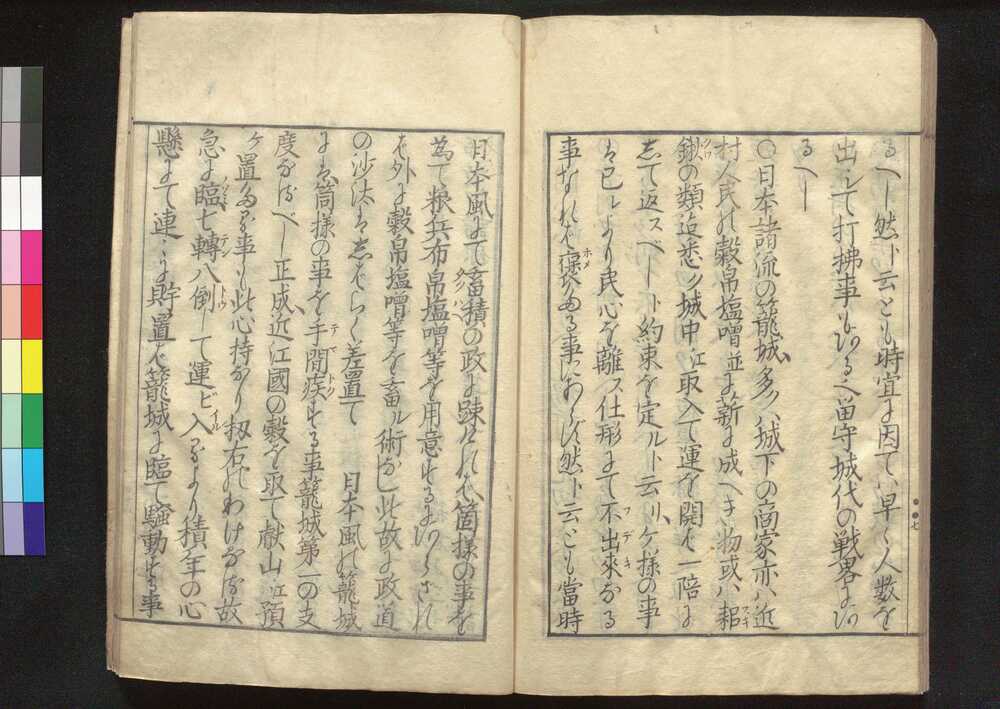 るへし然ト云とも時宜に因ては早く人数を
出して打拂事もある也留守城代の戦畧にあ
るへし
〇日本諸流の籠城多くハ城下の商家亦ハ近
村人民の穀帛塩噌並に薪に成へき物或ハ耜
鍬の類迄悉ク城中江取入て運を開かは一陪に
して返スべしト約束を定ルト云リケ様の事
は已レより民心を離ス仕形にて不出来なる
事なれは褒たる事にあらす然ト云とも當時
日本風にて畜積の政に疎けれは箇様の事を
為て粮兵布帛塩噌等を用意するにあらされ
は外に穀帛塩噌等を畜ル術なし此故に政道
の沙汰はしはらく差置て 日本風の籠城
には箇様の事を手間疾する事籠城第一の支
度なるべし正成近江國の穀を取て献山江預
ケ置たる事も此心持なり扨右のわけなる故
急に臨七轉八倒して運ビ入るより積年の心
懸にて連々に貯置は籠城に臨て騒動する事